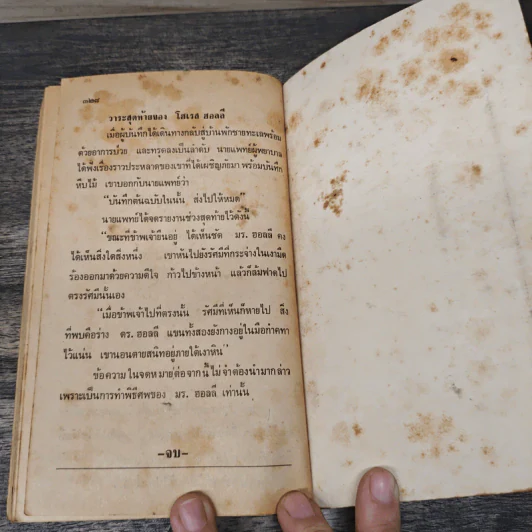 ๓๒๘
วาระสุดท้ายของ โฮเรส ฮอลลี่
เมื่อผู้บันทึกได้เดินทางกลับสู่บ้านพักชายทะเลพร้อม
ด้วยอาการป่วย และทรุดลงเป็นลำดับ นายแพทย์ผู้พยาบาล
ได้ฟังเรื่องราวประหลาดของเขาที่ได้เผชิญภัยมา พร้อมบันทึก
หีบไม้ เขาบอกกับนายแพทย์ว่า
“บันทึกต้นฉบับในนั้น ส่งไปให้หมด”
นายแพทย์ได้จดรายงานช่วงสุดท้ายไว้ดังนี้
“ขณะที่ข้าพเจ้ายืนอยู่ ได้เห็นชัด มร. ฮอลลี่ คง
ได้เห็นสิ่งใดสิ่งหนึ่ง เขาหันไปยังรัศมีที่กระจ่างในเงามืด
ร้องออกมาด้วยความดีใจ ก้าวไปข้างหน้า แล้วก็ล้มฟาดไป
ตรงรัศมีนั้นเอง
“เมื่อข้าพเจ้าไปที่ตรงนั้น รัศมีที่เห็นก็หายไป สิ่ง
ที่พบคือร่าง ดร. ฮอลลี่ แขนทั้งสองยังกางอยู่ในมือกำคทา
ไว้แน่น เขานอนตายสนิทอยู่ภายใต้เงาหิน”
ข้อความในจดหมายต่อจากนี้ไม่จำต้องนำมากล่าว
เพราะเป็นการทำพิธีศพของ มร. ฮอลลี่ เท่านั้น
–จบ–